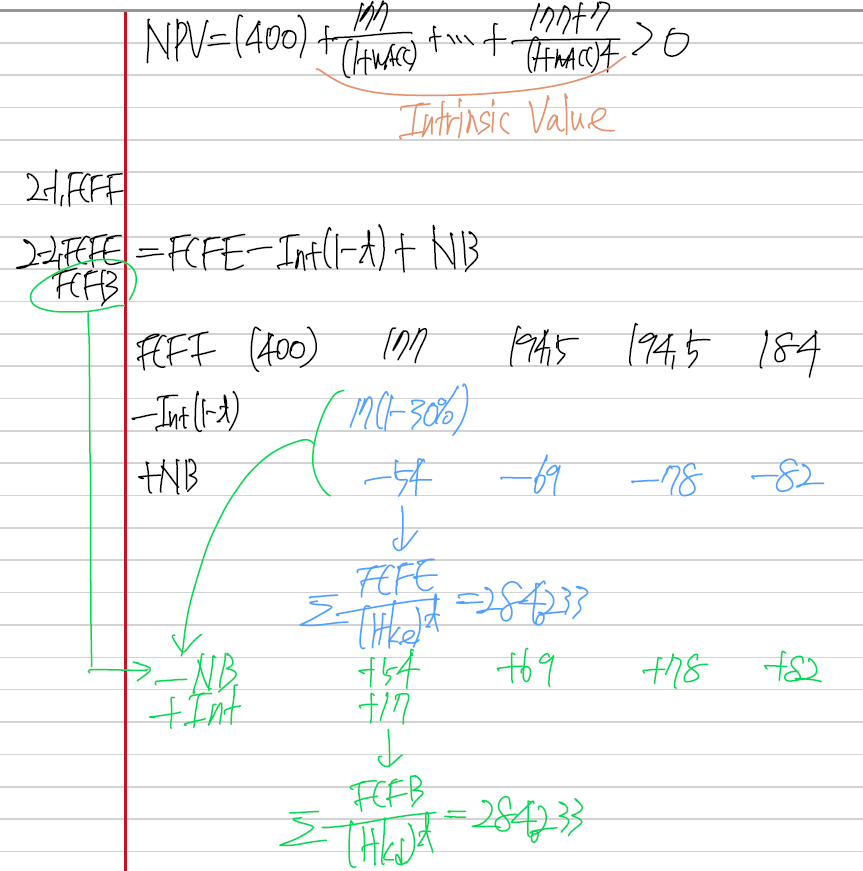 NPV=(400)+177/(1+WACC)+...+177+7/(1+WACC)4>0
Intrinsic Value
2-1, FCFF
2-2, FCFE = FCFE-Int(1-t)+NB
FCFB
FCFF (400) 177 194,5 194,5 184
-Int(1-t) 17(1-30%)
+NB -54 -69 -78 -82
Σ FCFE/(1+ke)^t = 284,233
-NB +54 +69 +78 +82
+Int +17
Σ FCFB/(1+kd)^t = 284,233